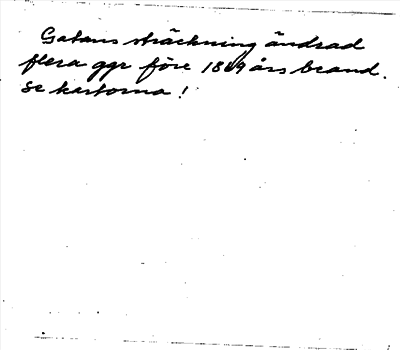 Gatans sträckning ändrad
flera ggr före 1869 års brand.
Se kartorna!